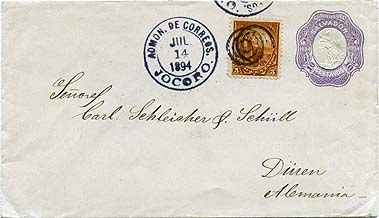 ADMON. DE CORREOS.
JUL
14
1894
JOCORO.
SALVADOR
5 5
Señores
Carl Schleicher & Schüll
Düren
Alemania